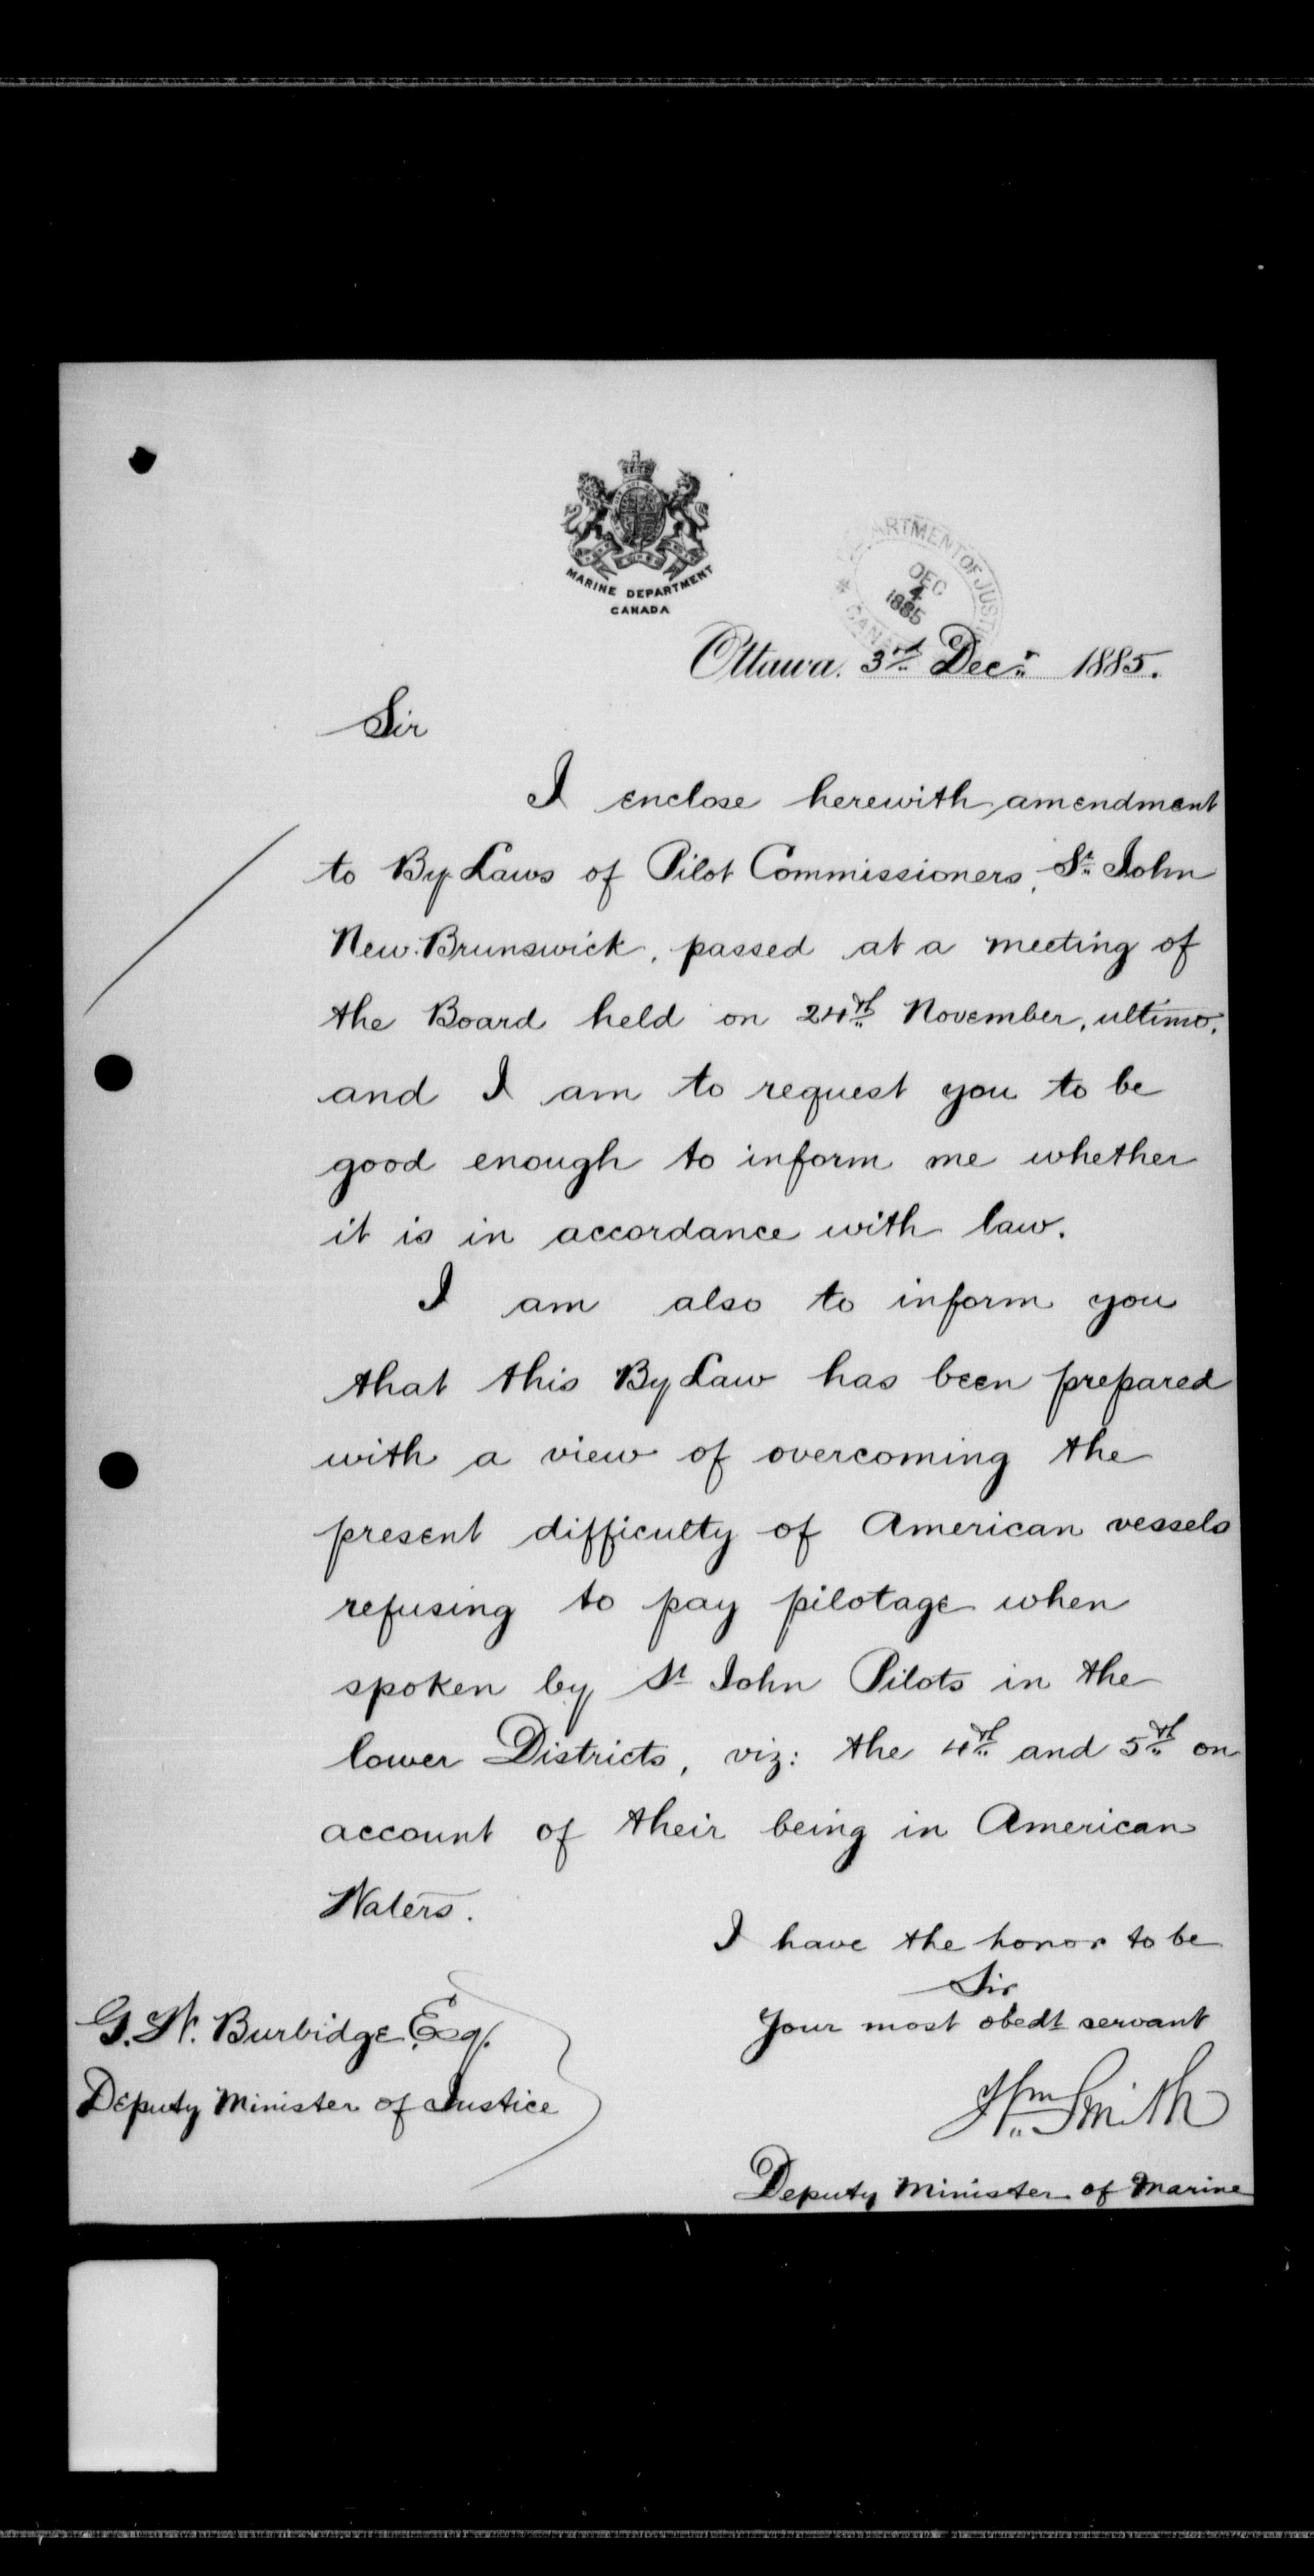 MARINE DEPARTMENT
CANADA
DEPARTMENT OF JUSTICE
DEC
4
1885
CANADA
Ottawa. 3rd Decr 1885.
Sir
I enclose herewith amendment
to By Laws of Pilot Commissioners, St John
New Brunswick, passed at a meeting of
the Board held on 24th November, ultimo,
and I am to request you to be
good enough to inform me whether
it is in accordance with law.
I am also to inform you
that this By Law has been prepared
with a view of overcoming the
present difficulty of American vessels
refusing to pay pilotage when
spoken by St John Pilots in the
lower Districts, viz: the 4th and 5th on
account of their being in American
Waters.
I have the honor to be
Sir
Your most obedt servant
Wm Smith
Deputy Minister of Marine
G. W. Burbidge, Esq.
Deputy Minister of Justice